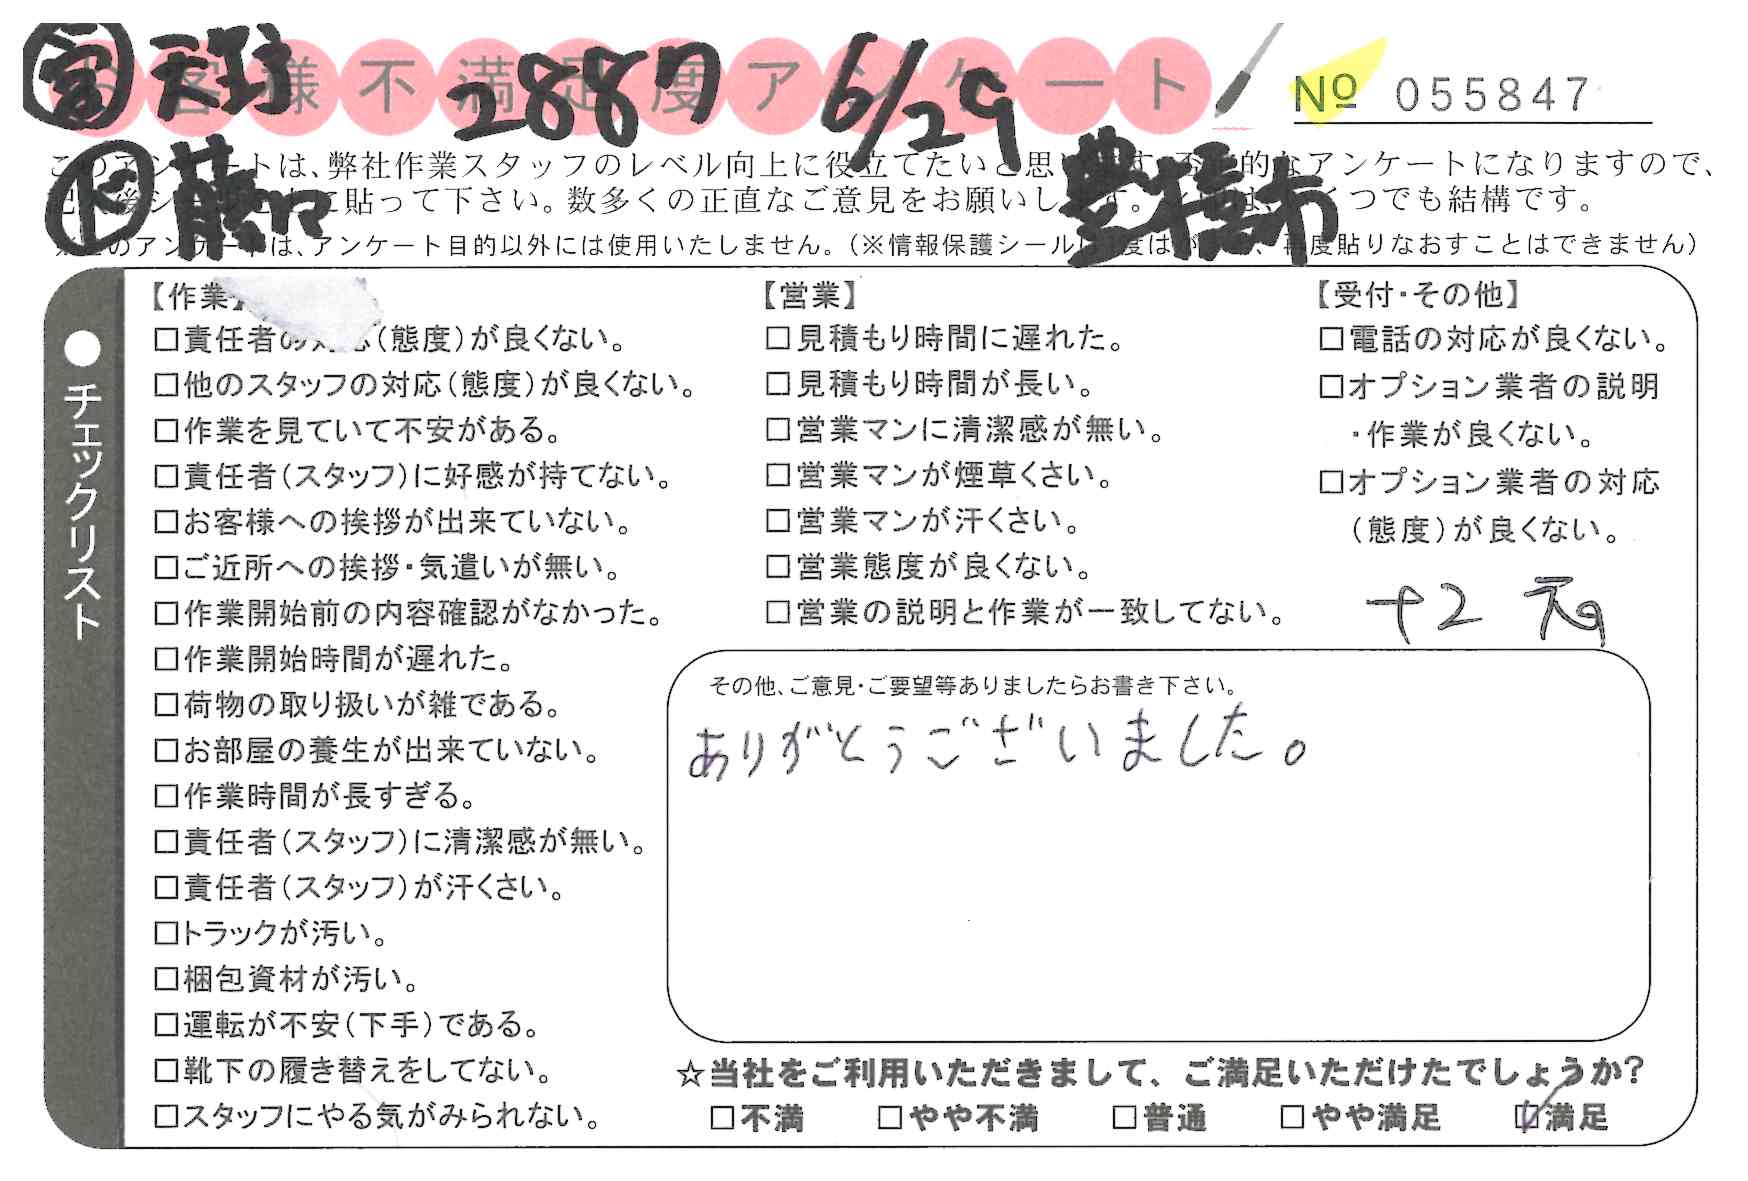 営 天野 2887 6/29
お客様不満足度アンケート
№ 055847
このアンケートは、弊社作業スタッフのレベル向上に役立てたいと思います。不定期的なアンケートになりますので、
後シールを 貼って下さい。数多くの正直なご意見をお願いします。 いくつでも結構です。
豊橋市
※このアンケートは、アンケート目的以外には使用いたしません。（※情報保護シールは1度はがすと、再度貼りなおすことはできません）
●チェックリスト
【作業】
□責任者の対応（態度）が良くない。
□他のスタッフの対応（態度）が良くない。
□作業を見ていて不安がある。
□責任者（スタッフ）に好感が持てない。
□お客様への挨拶が出来ていない。
□ご近所への挨拶・気遣いが無い。
□作業開始前の内容確認がなかった。
□作業開始時間が遅れた。
□荷物の取り扱いが雑である。
□お部屋の養生が出来ていない。
□作業時間が長すぎる。
□責任者（スタッフ）に清潔感が無い。
□責任者（スタッフ）が汗くさい。
□トラックが汚い。
□梱包資材が汚い。
□運転が不安（下手）である。
□靴下の履き替えをしてない。
□スタッフにやる気がみられない。
【営業】
□見積もり時間に遅れた。
□見積もり時間が長い。
□営業マンに清潔感が無い。
□営業マンが煙草くさい。
□営業マンが汗くさい。
□営業態度が良くない。
□営業の説明と作業が一致してない。
【受付・その他】
□電話の対応が良くない。
□オプション業者の説明
・作業が良くない。
□オプション業者の対応
（態度）が良くない。
+2
その他、ご意見・ご要望等ありましたらお書き下さい。
ありがとうございました。
☆当社をご利用いただきまして、ご満足いただけたでしょうか？
□不満 □やや不満 □普通 □やや満足 ☑満足